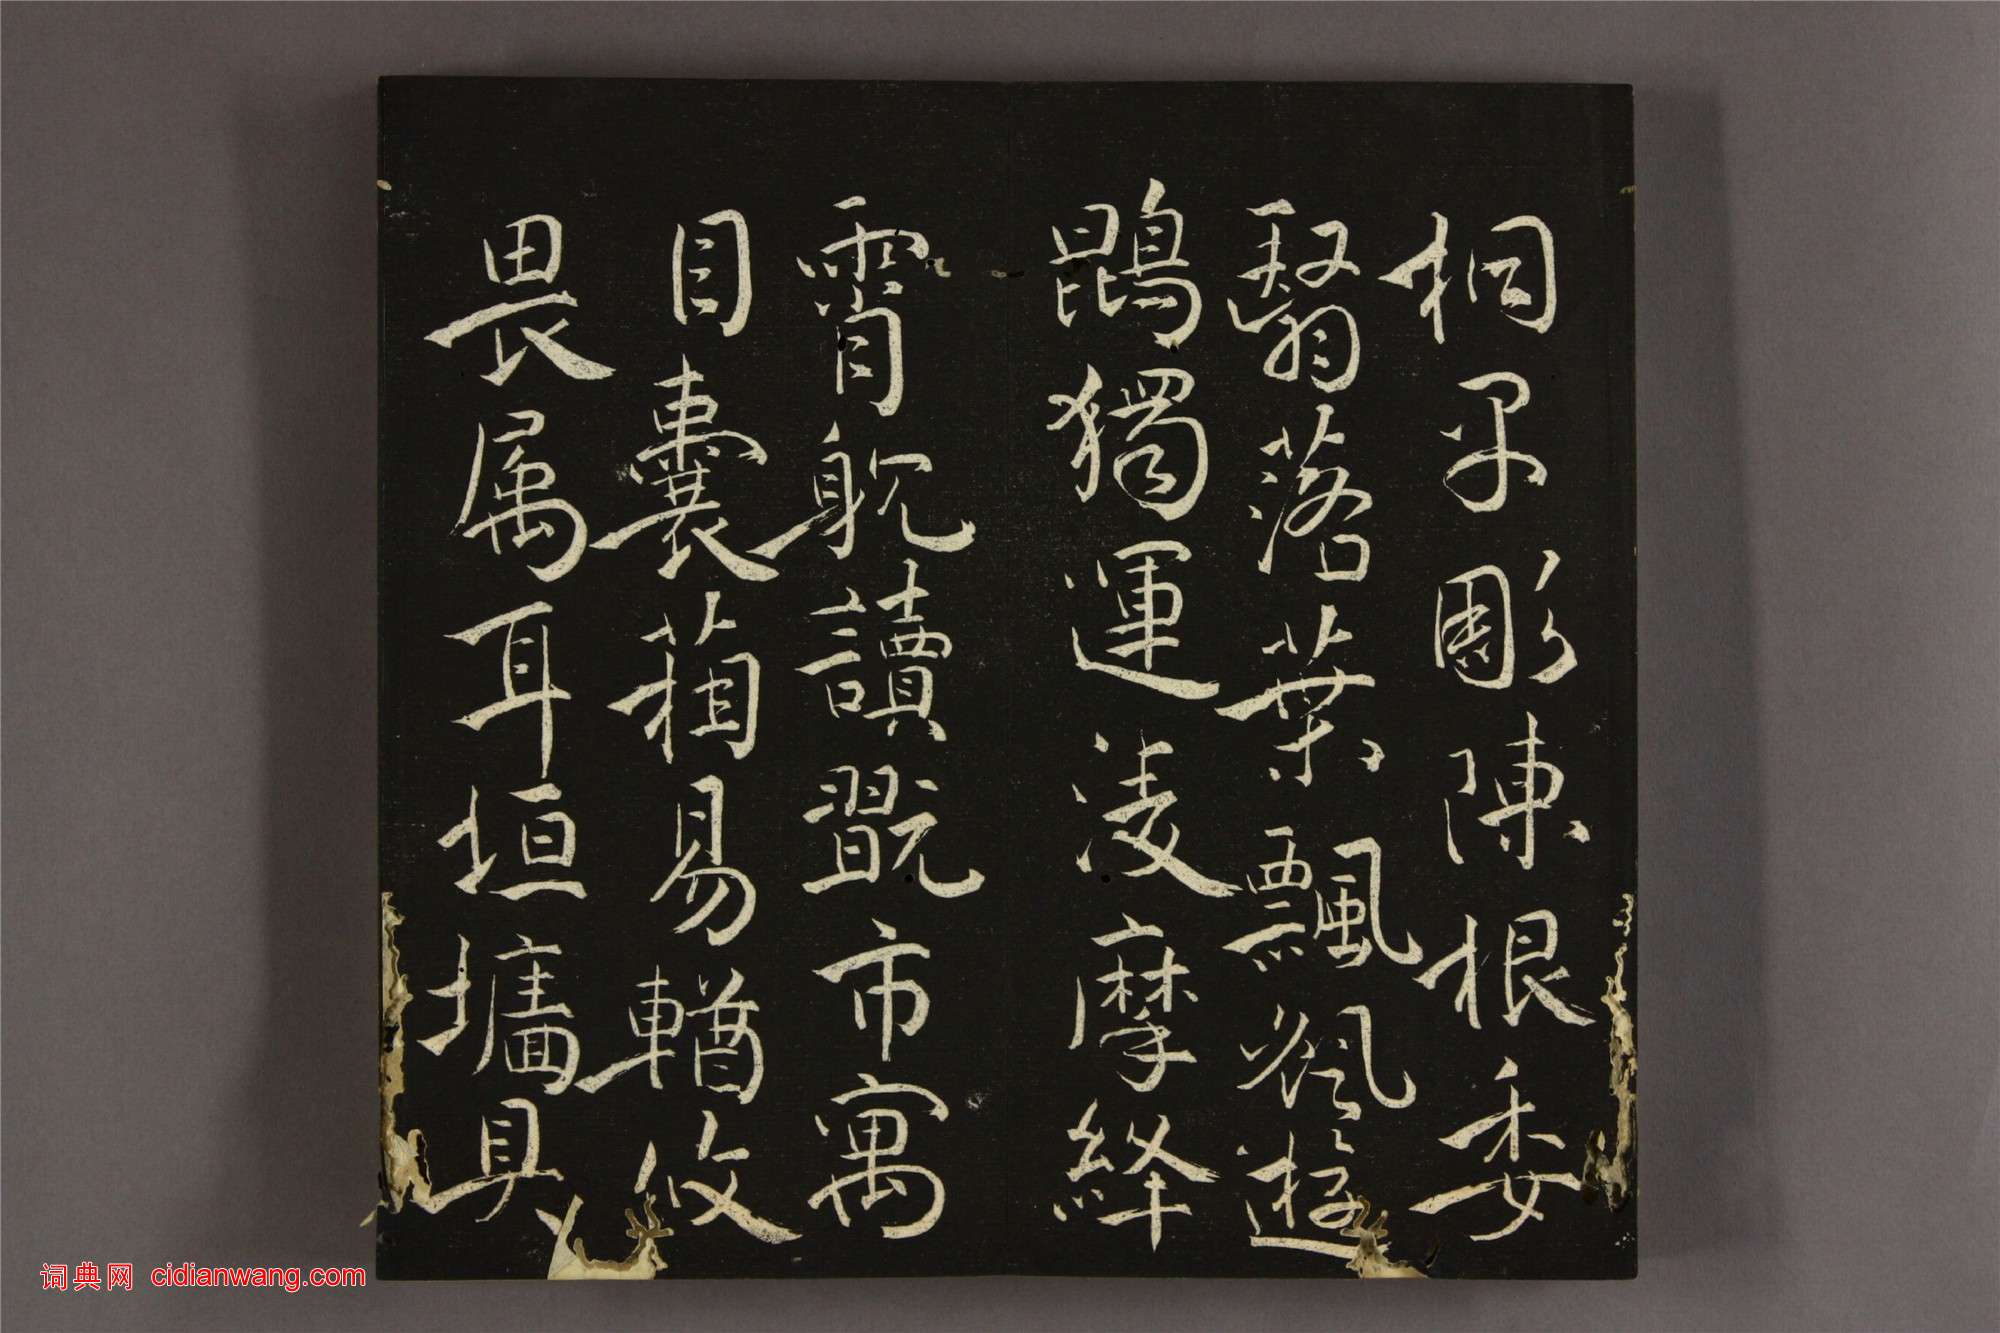 桐早彫陳根委
翳落葉飄颻遊
鵾獨運淩摩絳
霄躭讀翫市寓
目囊葙易輶攸
畏属耳垣墻具
词典网 cidianwang.com